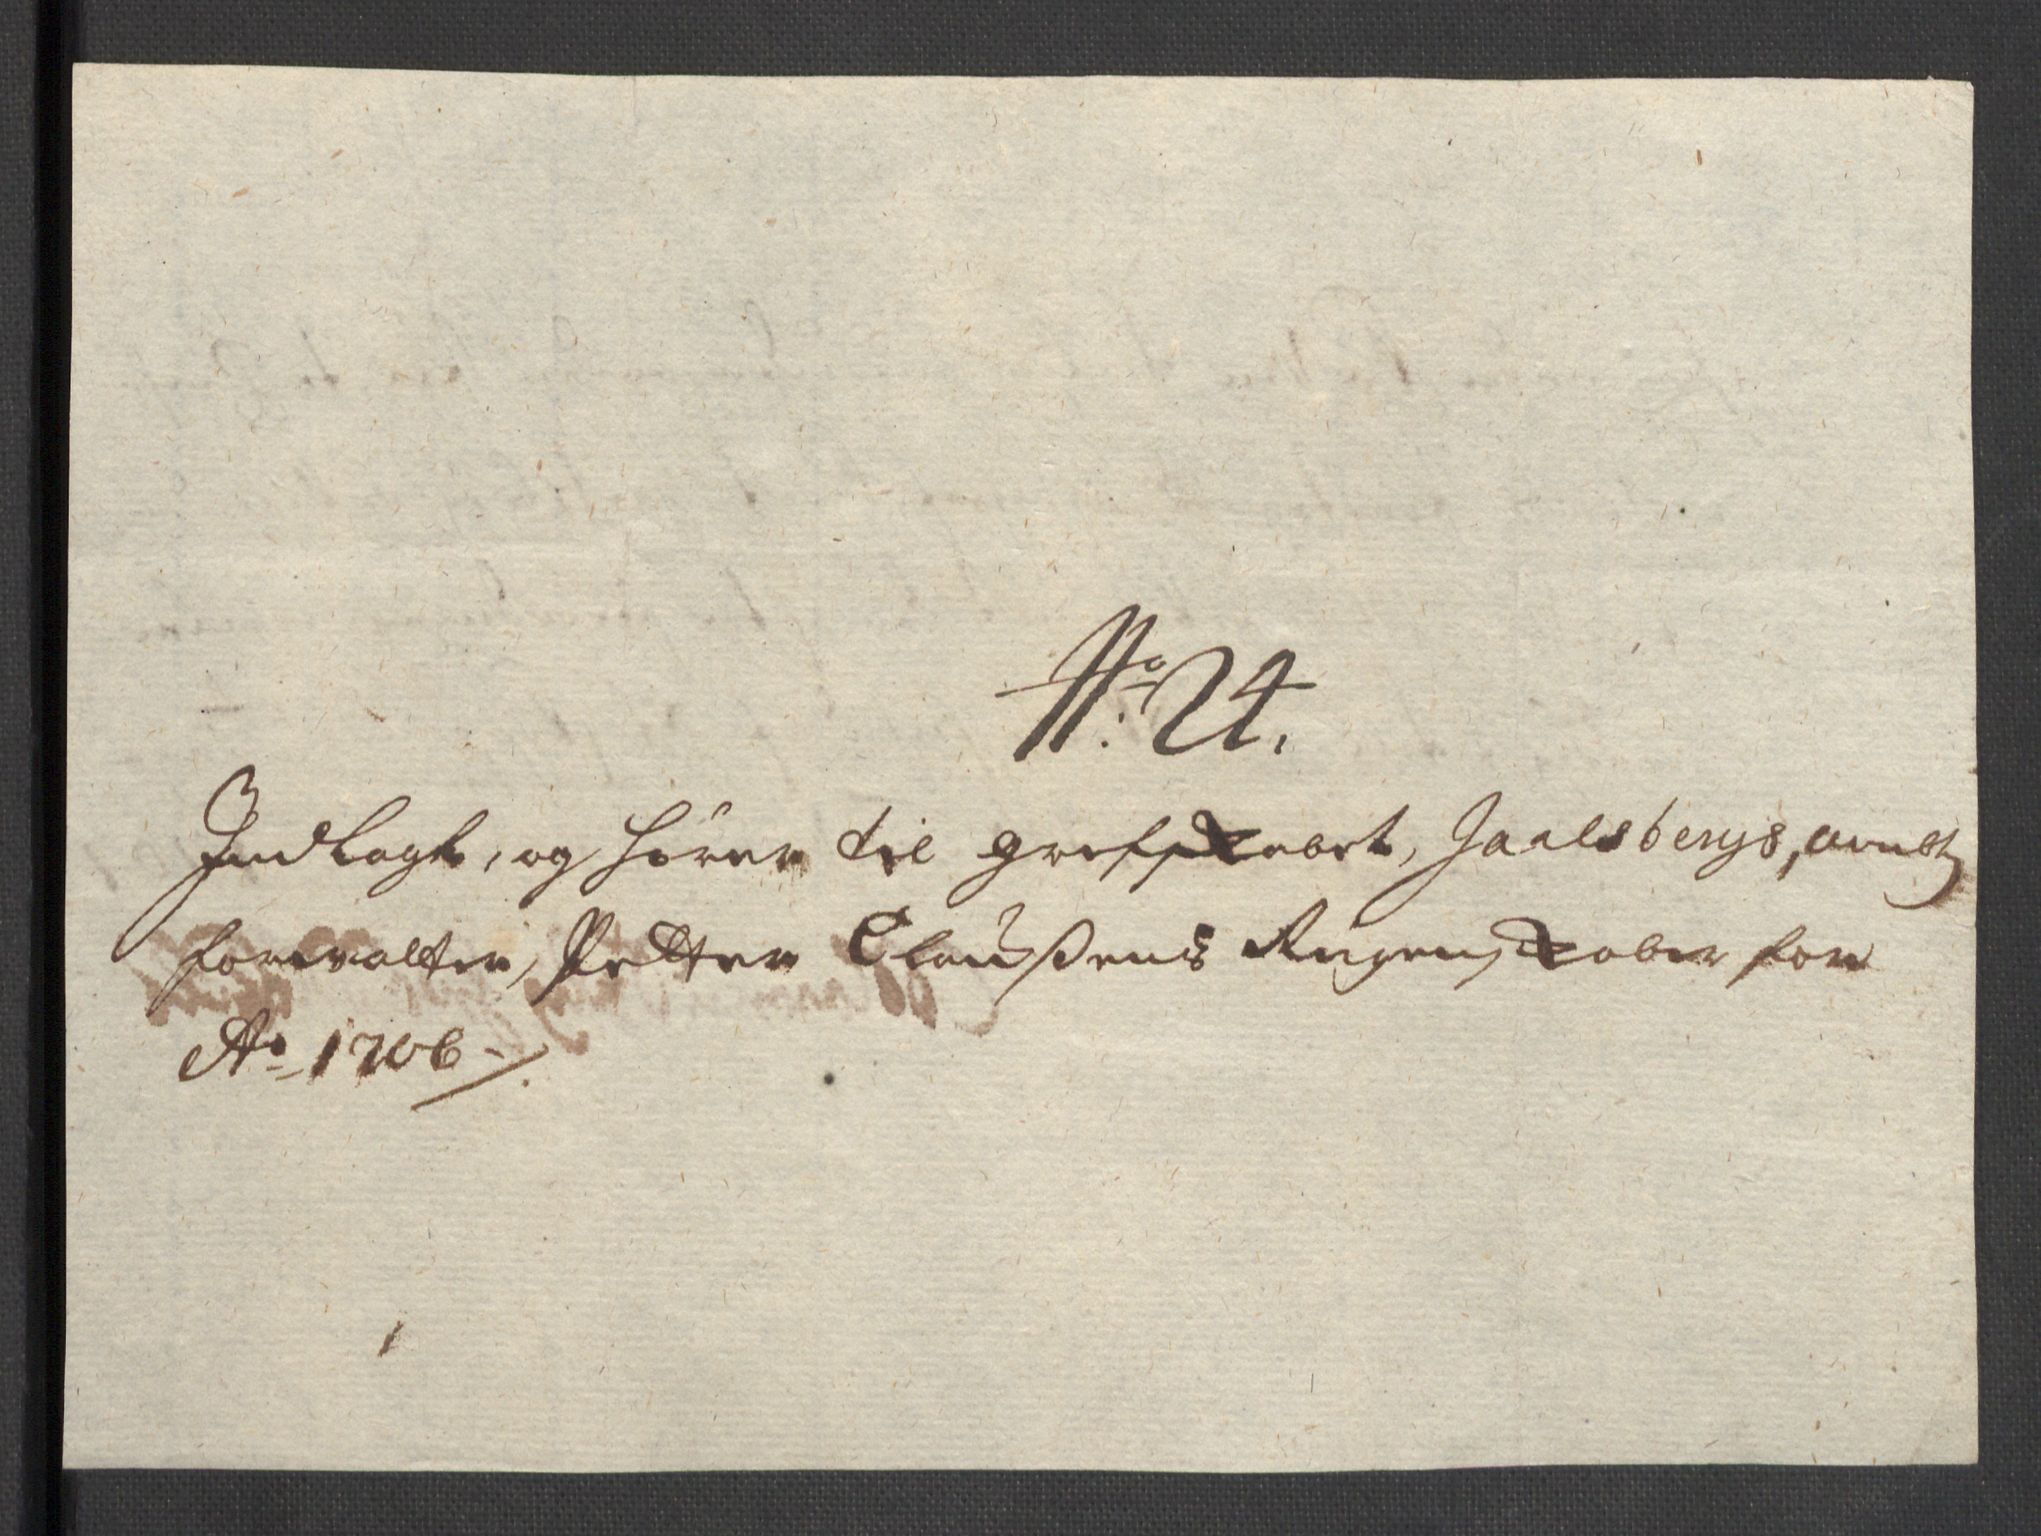 No: 24.
Indlagt, og hörer til grefskabet, Jaalsbergs,
forvalter, Petter Claußens Regenskaber for
Ao 1706